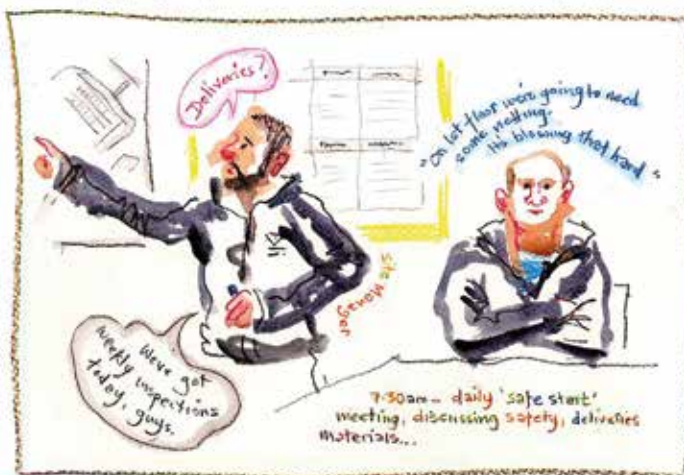 Deliveries?
"On 1st floor we're going to need
some netting.
Its blowing that hard"
site Manager
We've got
weekly inspections
today, guys.
7.30am - daily 'safe start'
meeting, discussing safety, deliveries
materials...